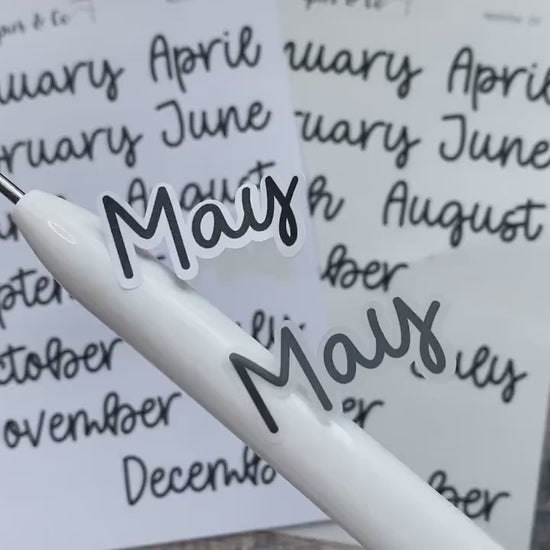 & Co
uary April uary April
ruary June ruary June
August h August
May
ber
May
ctober uly
ovember er
Decemb ber